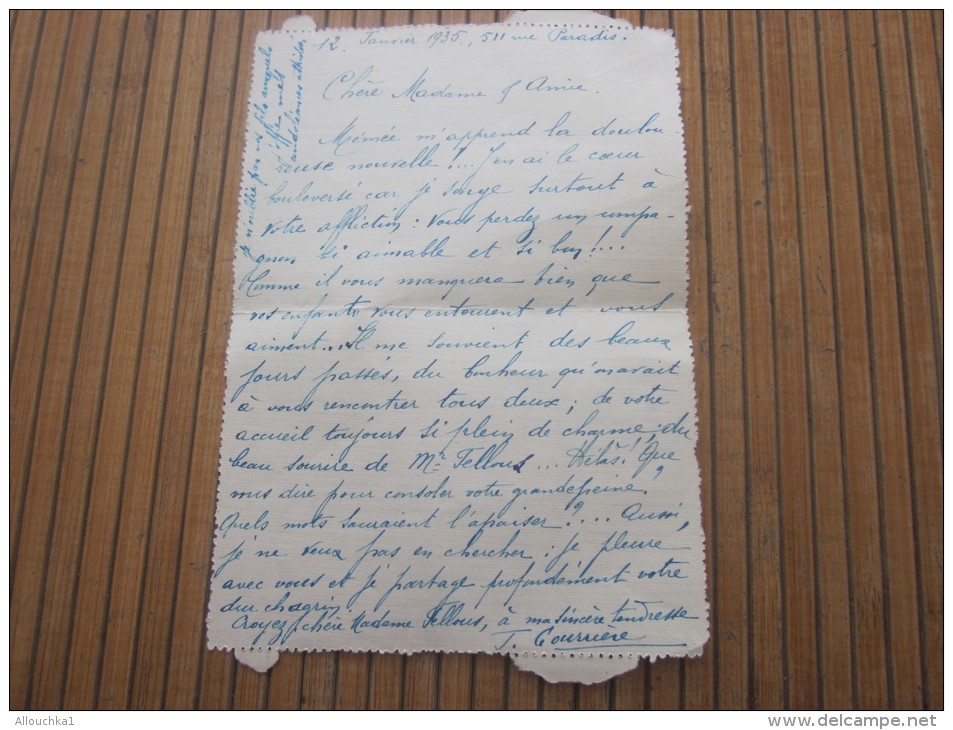 12 Janvier 1935, 511 rue Paradis.
Chère Madame & Amie.
Mémée m'apprend la doulou
reuse nouvelle!... J'en ai le cœur
bouleversé car je songe surtout à
votre affliction : vous perdez un compa-
gnon si aimable et si bon!...
Comme il vous manquera bien que
vos enfants vous entourent et vous
aiment... Il me souvient des beaux
jours passés, du bonheur qu'on avait
à vous rencontrer tous deux ; de votre
accueil toujours si plein de charme ; du
beau sourire de Mr Fellous... Hélas! Que
vous dire pour consoler votre grande peine?
Quels mots sauraient l'apaiser?... Aussi,
je ne veux pas en chercher : je pleure
avec vous et je partage profondément votre
dur chagrin.
Croyez, chère Madame Fellous, à ma sincère tendresse
T. Courrière
Je n'oublie pas vos fils auxquels
Allouchka1
www.delcampe.net